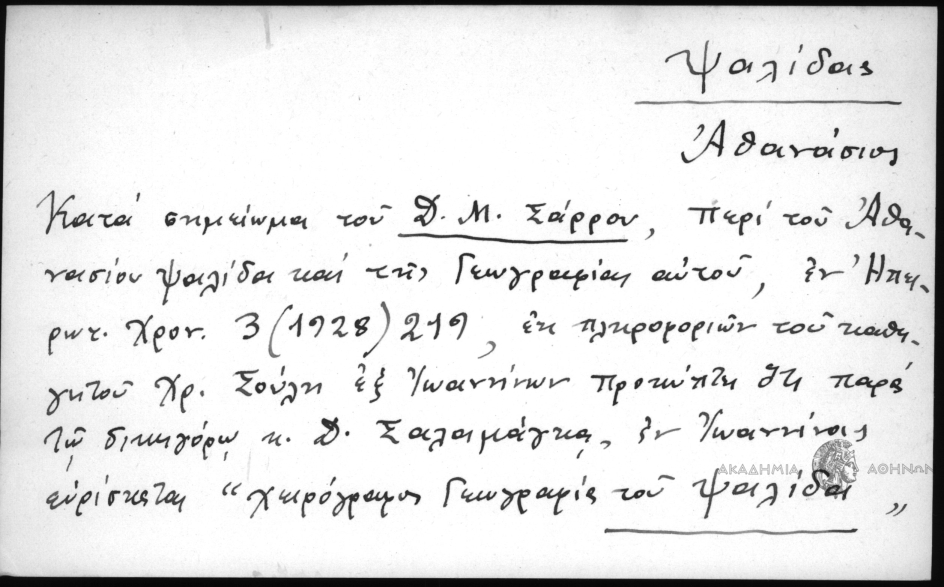 Ψαλίδας
Ἀθανάσιος
Κατά σημείωμα τοῦ Δ. Μ. Σάρρου, περί τοῦ Ἀθα-
νασίου Ψαλίδα καί τῆς Γεωγραφίας αὐτοῦ, ἐν Ἠπει-
ρωτ. Χρον. 3 (1928) 219, ἐκ πληροφοριῶν τοῦ καθη-
γητοῦ Χρ. Σούλη ἐξ Ἰωαννίνων προκύπτει ὅτι παρά
τῷ δικηγόρῳ κ. Δ. Σαλαμάγκᾳ, ἐν Ἰωαννίνοις
εὑρίσκεται “χειρόγραφος Γεωγραφία τοῦ Ψαλίδα„
ΑΚΑΔΗΜΙΑ ΑΘΗΝΩΝ